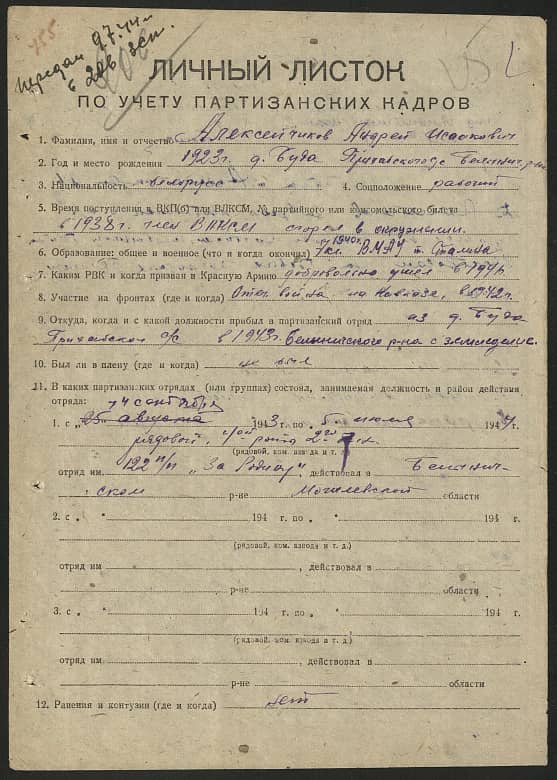 передан 9.7.44 г
в 208 зсп.
ЛИЧНЫЙ ЛИСТОК
ПО УЧЕТУ ПАРТИЗАНСКИХ КАДРОВ
1. Фамилия, имя и отчество Алексейчиков Андрей Исакович
2. Год и место рождения 1923 г. д. Буда
3. Национальность белорусс 4. Соцположение рабочий
5. Время поступления в ВКП(б) или ВЛКСМ, № партийного или комсомольского билета
в 1938 г. член ВЛКСМ сгорел в окружении.
6. Образование: общее и военное (что и когда окончил) 7 кл. 1940 г.
7. Каким РВК и когда призван в Красную Армию добровольно ушел в
8. Участие на фронтах (где и когда) Отеч. война на Кавказе, в 1942 г.
9. Откуда, когда и с какой должности прибыл в партизанский отряд из д. Буда
с/с в 1943 г. Белыничского р-на с
10. Был ли в плену (где и когда) не был
11. В каких партизанских отрядах (или группах) состоял, занимаемая должность и район действия
отряда: 14 сентября
1. с „25 августа 1943 г. по 5 июля 1944 г.
рядовой, рота
(рядовой, ком. взвода и т. д.)
отряд им. 122 п/п „За Родину", действовал в Белынич-
ском р-не Могилевской области
2. с „ " 194 г. по „ " 194 г.
(рядовой, ком. взвода и т. д.)
отряд им , действовал в
р-не области
3. с „ " 194 г. по „ " 194 г.
(рядовой, ком. взвода и т. д.)
отряд им. , действовал в
р-не области
12. Ранения и контузии (где и когда) нет